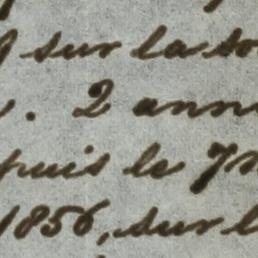 sur la
. 2 ann
puis le 7
1856, sur l